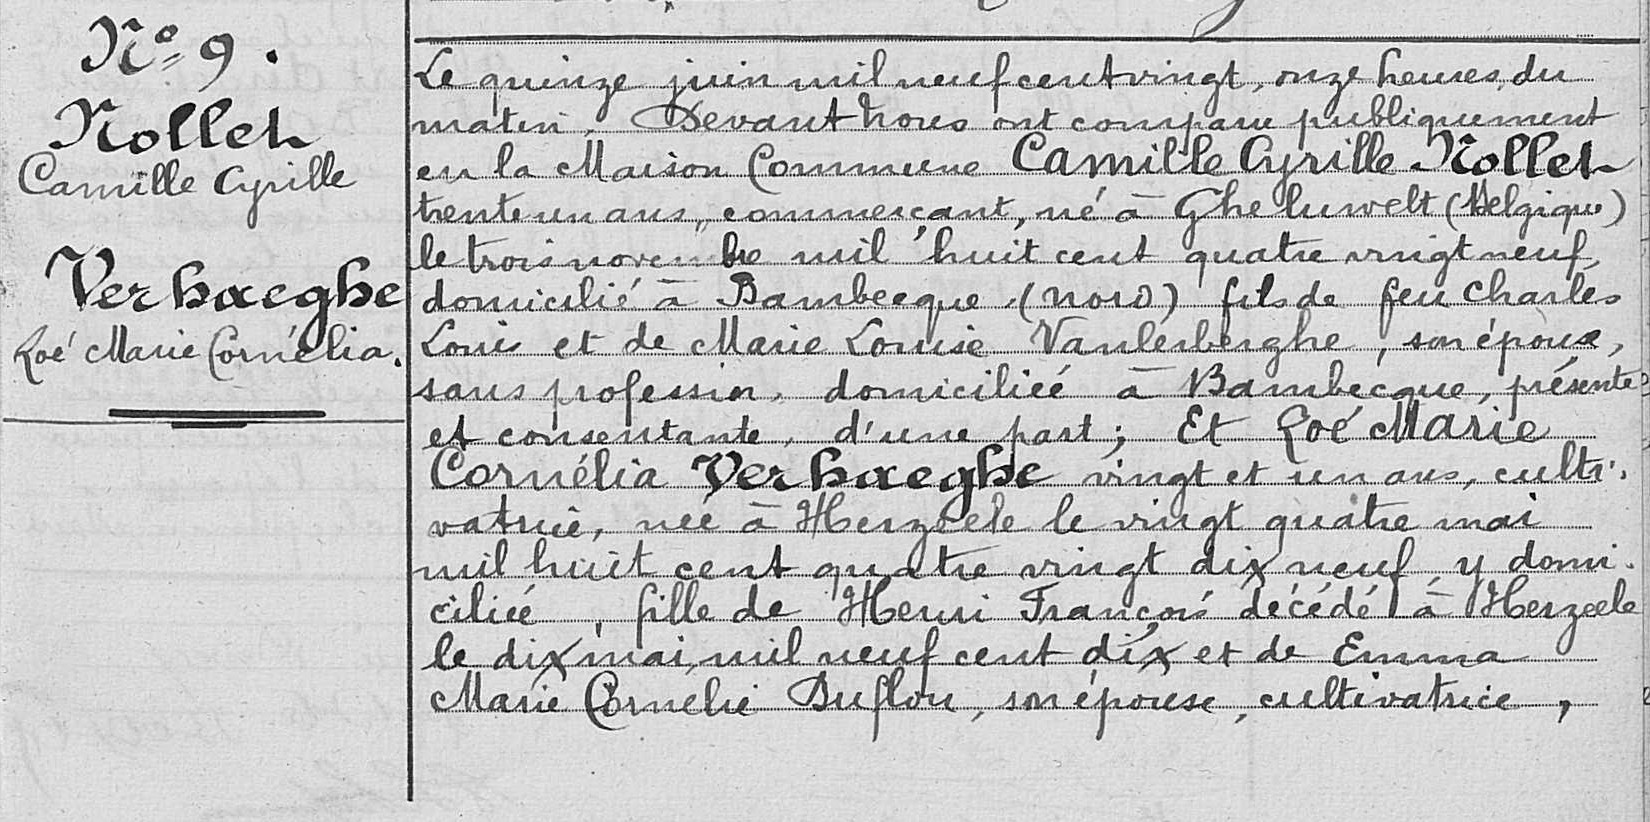 N° 9.
Nollet
Camille Cyrille
Verhaeghe
Zoé Marie Cornélia.
Le quinze juin mil neuf cent vingt, onze heures du
matin, Devant Nous ont comparu publiquement
en la Maison Commune Camille Cyrille Nollet
trente un ans, commerçant, né à Gheluwelt (Belgique)
le trois novembre mil huit cent quatre vingt neuf,
domicilié à Bambecque (Nord) fils de feu Charles
Louis et de Marie Louise Vanlerberghe, son épouse,
sans profession, domiciliée à Bambecque, présente
et consentante, d'une part; Et Zoé Marie
Cornélia Verhaeghe vingt et un ans, culti-
vatrice, née à Herzeele le vingt quatre mai
mil huit cent quatre vingt dix neuf y domi-
ciliée, fille de Henri François décédé à Herzeele
le dix mai mil neuf cent dix et de Emma
Marie Cornélie Duflou, son épouse, cultivatrice,